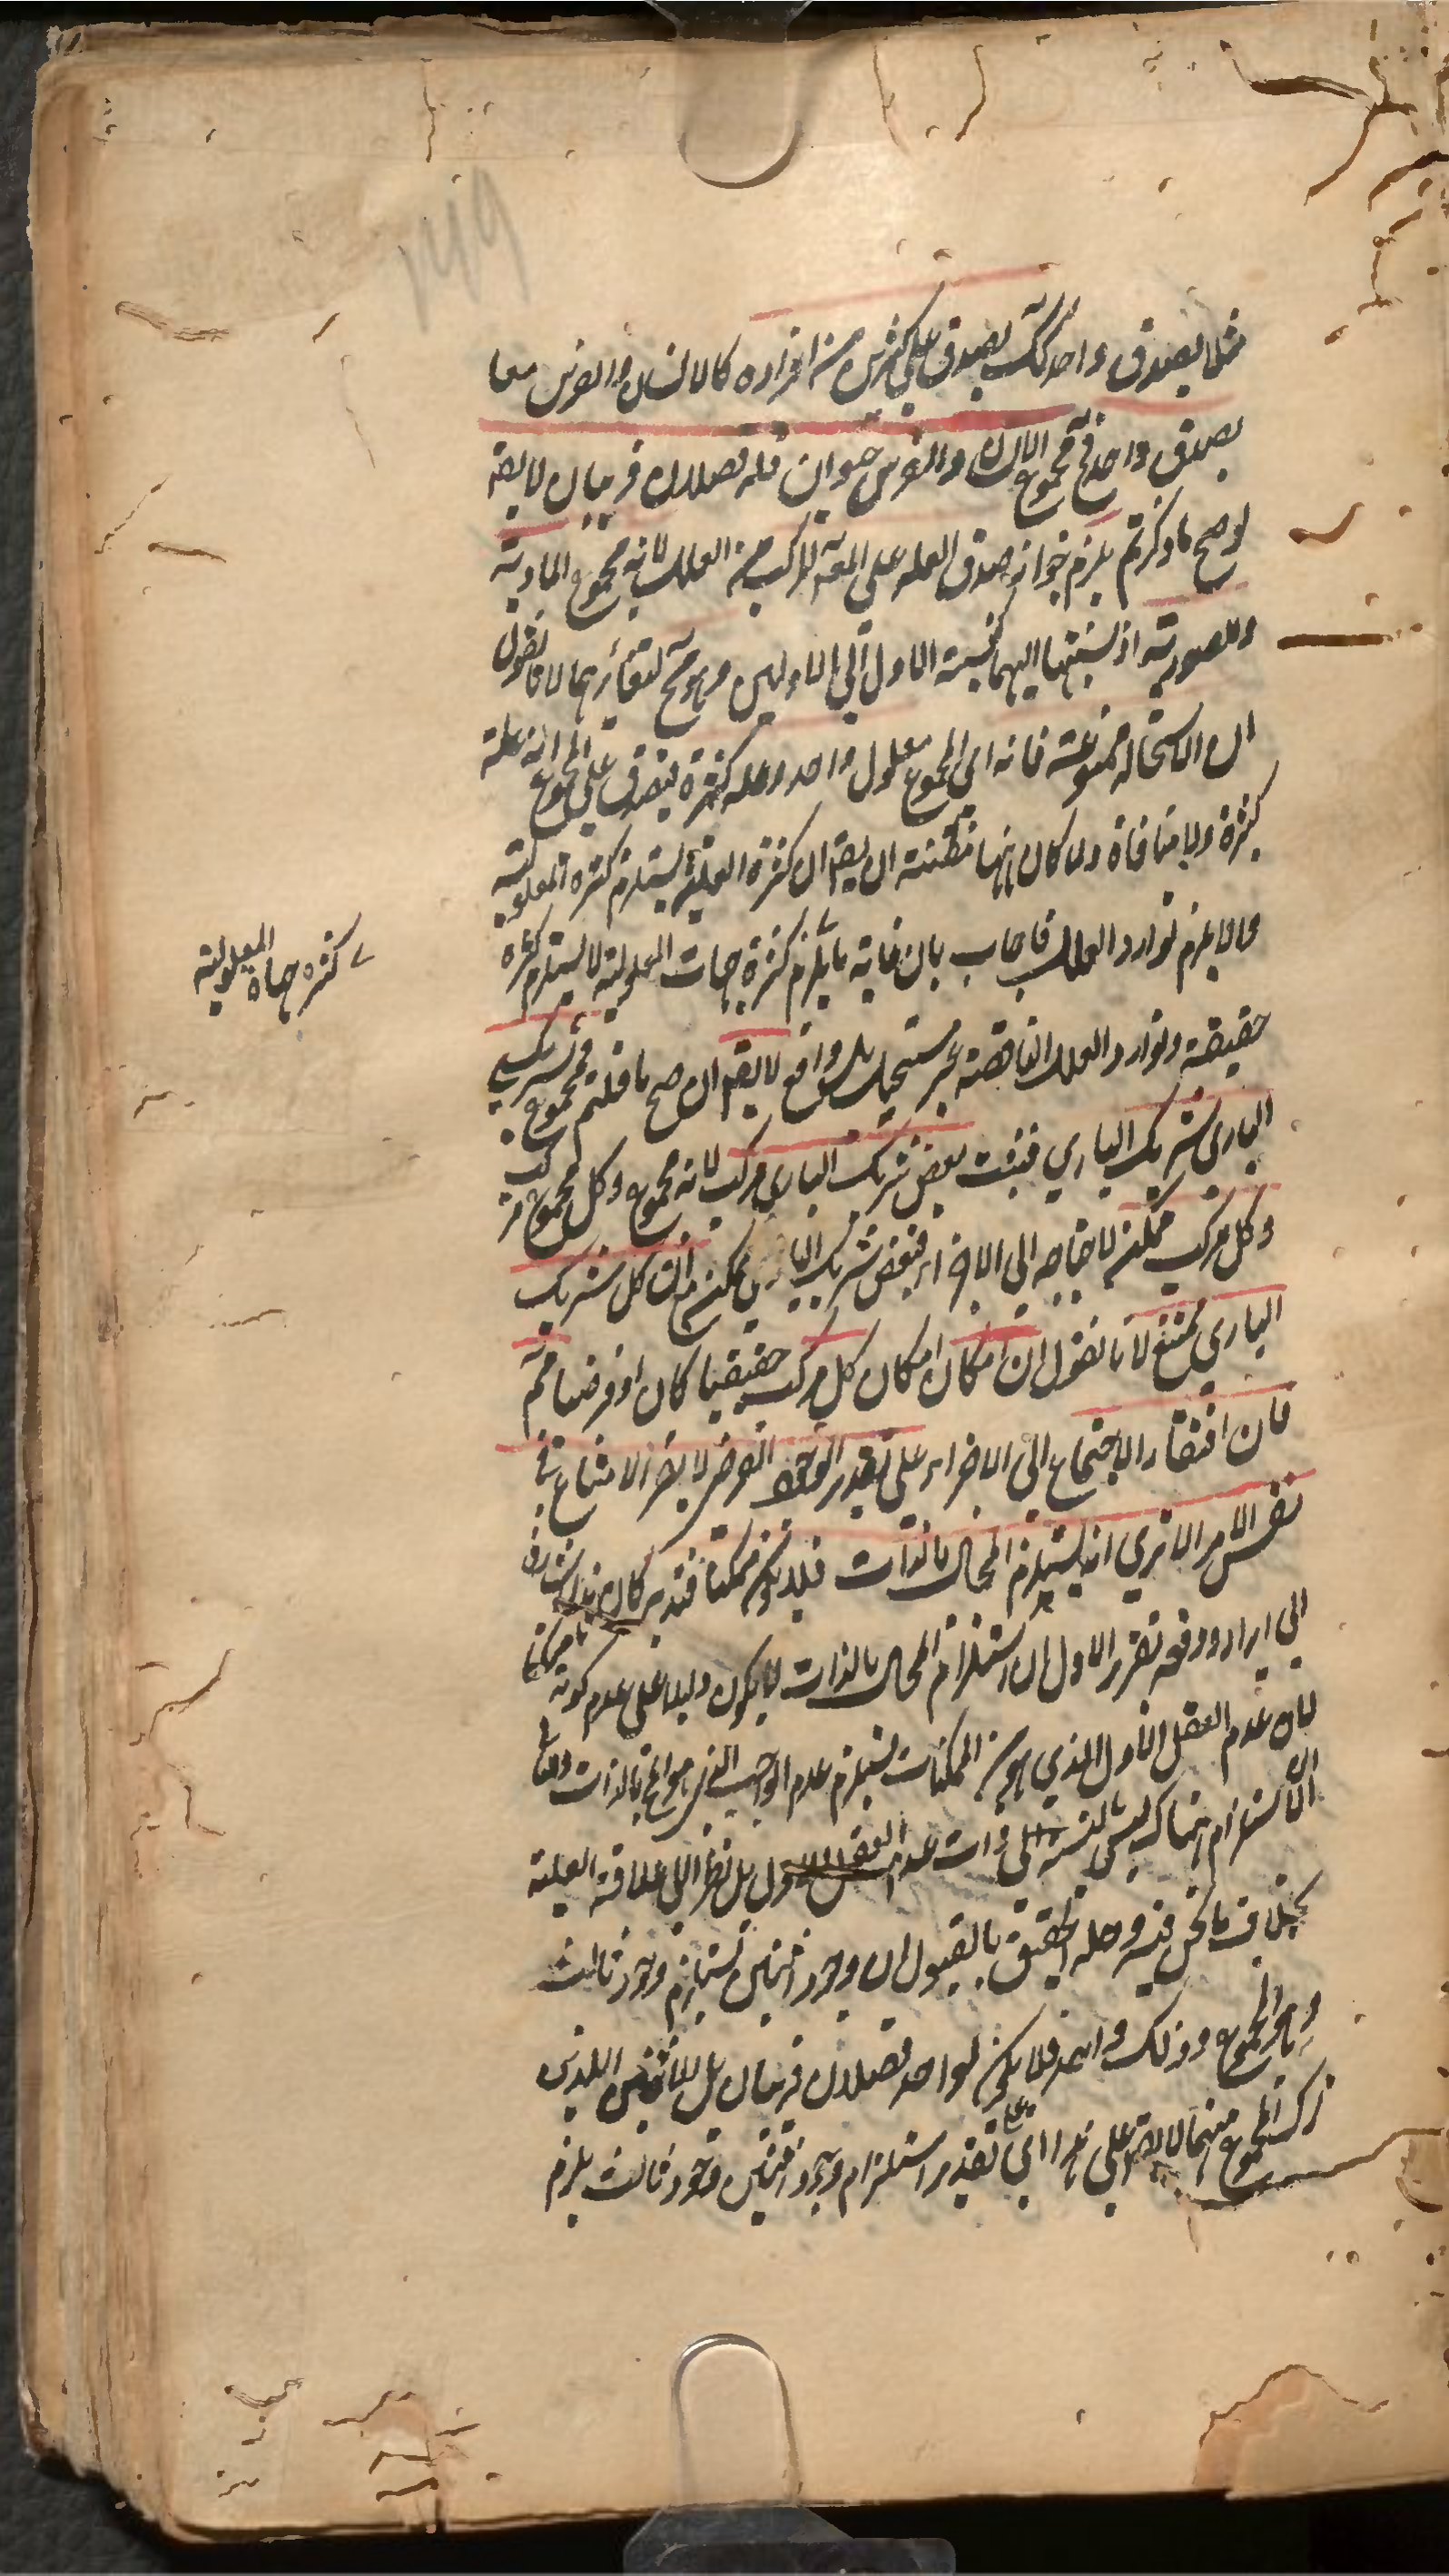 مثلا يصدق واحد كك يصدق على كثيرين من افراده كالانسان والفرس معا
يصدق واحد في مجموع الانسان والفرس حيوان فله فصلان قريبان لا يقه
لو صح ما ذكرتم يلزم جواز صدق العلة على المعه المركب من العلل لانه مجموع المادية
والصورية اذ نسبتها اليهما كنسبة الاول الى الاولين وهو مح لتغائرهما لانا نقول
ان الاستحالة ممنوعة فانه اى المجموع معلول واحد وعلة كثيرة فيصدق على المجموع انه علة
كثيرة ولا منافاة ولما كان ههنا مظنة ان يقه ان كثرة العلة يستلزم كثرة المعلولية
والا يلزم توارد العلل فاجاب بان غاية ما يلزم كثرة جهات المعلولية لا يستلزم كثرة
كثرة جهات المعلولية
حقيقة وتوارد العلل الناقصة غير مستحيل بل واقع لا يقه ان صح ما قلتم فمجموع شريكي
الباري شريك الباري فبعض شريك الباري مركب لانه مجموع وكل مجموع مركب
وكل مركب ممكن لاحتياجه الى الاجزاء فبعض شريك الباري ممكن مع ان كل شريك
الباري ممتنع لانا نقول ان امكان امكان كل مركب حقيقيا كان او فرضيا مم
فان افتقار الاجتماع الى الاجزاء على تقدير الوجود الفرضى لا يضر الامتناع فى
نفس الامر الا ترى انه يستلزم المحال بالذات فلا يكون ممكنا فتدبر كان هذا اشارة
الى ايراد ودفعه تقرير الاول ان استلزام المحال بالذات لا يكون دليلا على عدم كونه ممكنا
لان عدم العقل الاول الذي هو من الممكنات يستلزم عدم الواجب الذي هو المحال بالذات
الاستلزام هناك ليس بالنسبة الى ذات عدم العقل الاول بل نظرا الى علاقة العلية
بخلاف ما نحن فيه وحله الحقيق بالقبول ان وجود اثنين يستلزم وجود ثالث
وهو المجموع وذلك واحد فلا يكون لواحد فصلان قريبان بل للاثنين اللذين
تركب المجموع منهما لا يقه على هذا اى على تقدير استلزام وجود اثنين وجود ثالث يلزم